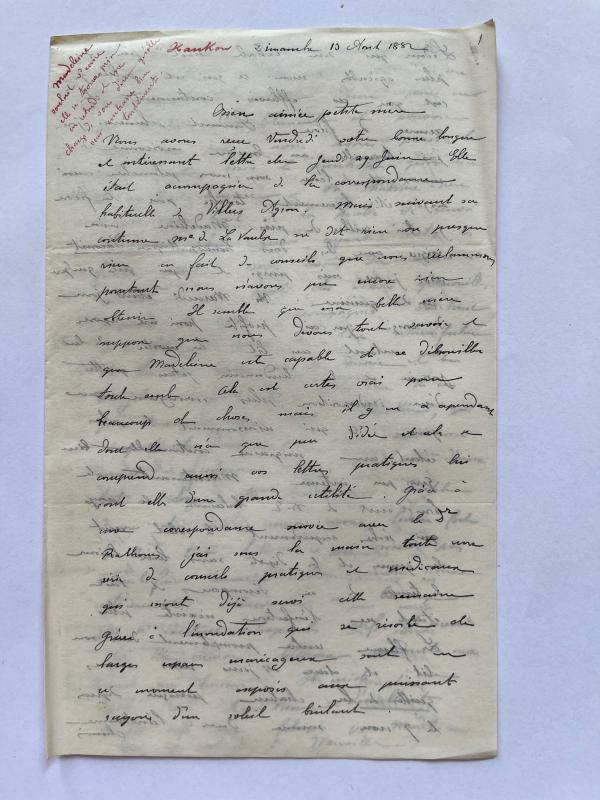 Madeleine
voulait
Hankow Dimanche 13 Août 1882 1
Bien aimée petite mère
Nous avons reçu Vendredi votre bonne longue
et intéressante lettre du Jeudi 29 Juin. Elle
était accompagnée de la correspondance
habituelle de Villers Agron. Mais suivant sa
coutume Me de La Vaulx ne dit rien ou presque
rien en fait de conseils que nous réclamons
pourtant nous n'avons pu encore rien
obtenir. Il semble que ma belle mère
suppose que nous devons tout savoir et
que Madeleine est capable de se débrouiller
toute seule. Cela est certes vrai pour
beaucoup de choses mais il y en a cependant
dont elle n'a que peu d'idée et cela se
comprend aussi vos lettres pratiques lui
sont elles d'une grande utilité. Grâce à
une correspondance suivie avec le Dr
j'ai sous la main toute une
série de conseils pratiques et médicaux
qui m'ont déjà servi cette semaine
Grâce à l'inondation qui se résorbe de
larges espaces marécageux sont en
ce moment exposés aux puissants
rayons d'un soleil brûlant.